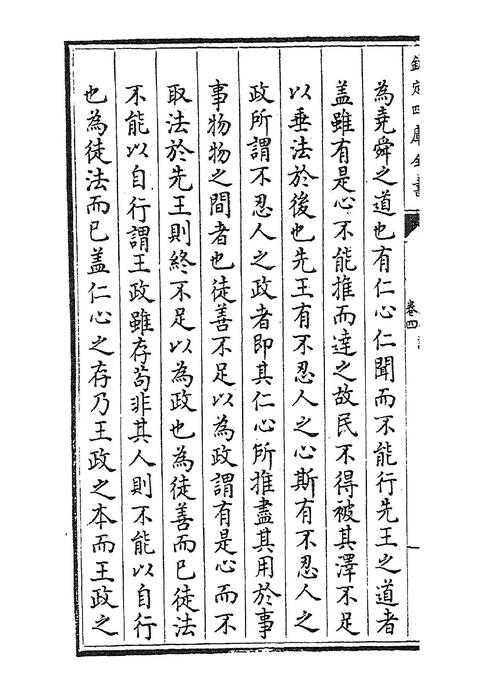 欽定四庫全書
卷四
為堯舜之道也有仁心仁聞而不能行先王之道者
蓋雖有是心不能推而達之故民不得被其澤不足
以垂法於後也先王有不忍人之心斯有不忍人之
政所謂不忍人之政者即其仁心所推盡其用於事
事物物之間者也徒善不足以為政謂有是心而不
取法於先王則終不足以為政也為徒善而已徒法
不能以自行謂王政雖存苟非其人則不能以自行
也為徒法而已蓋仁心之存乃王政之本而王政之